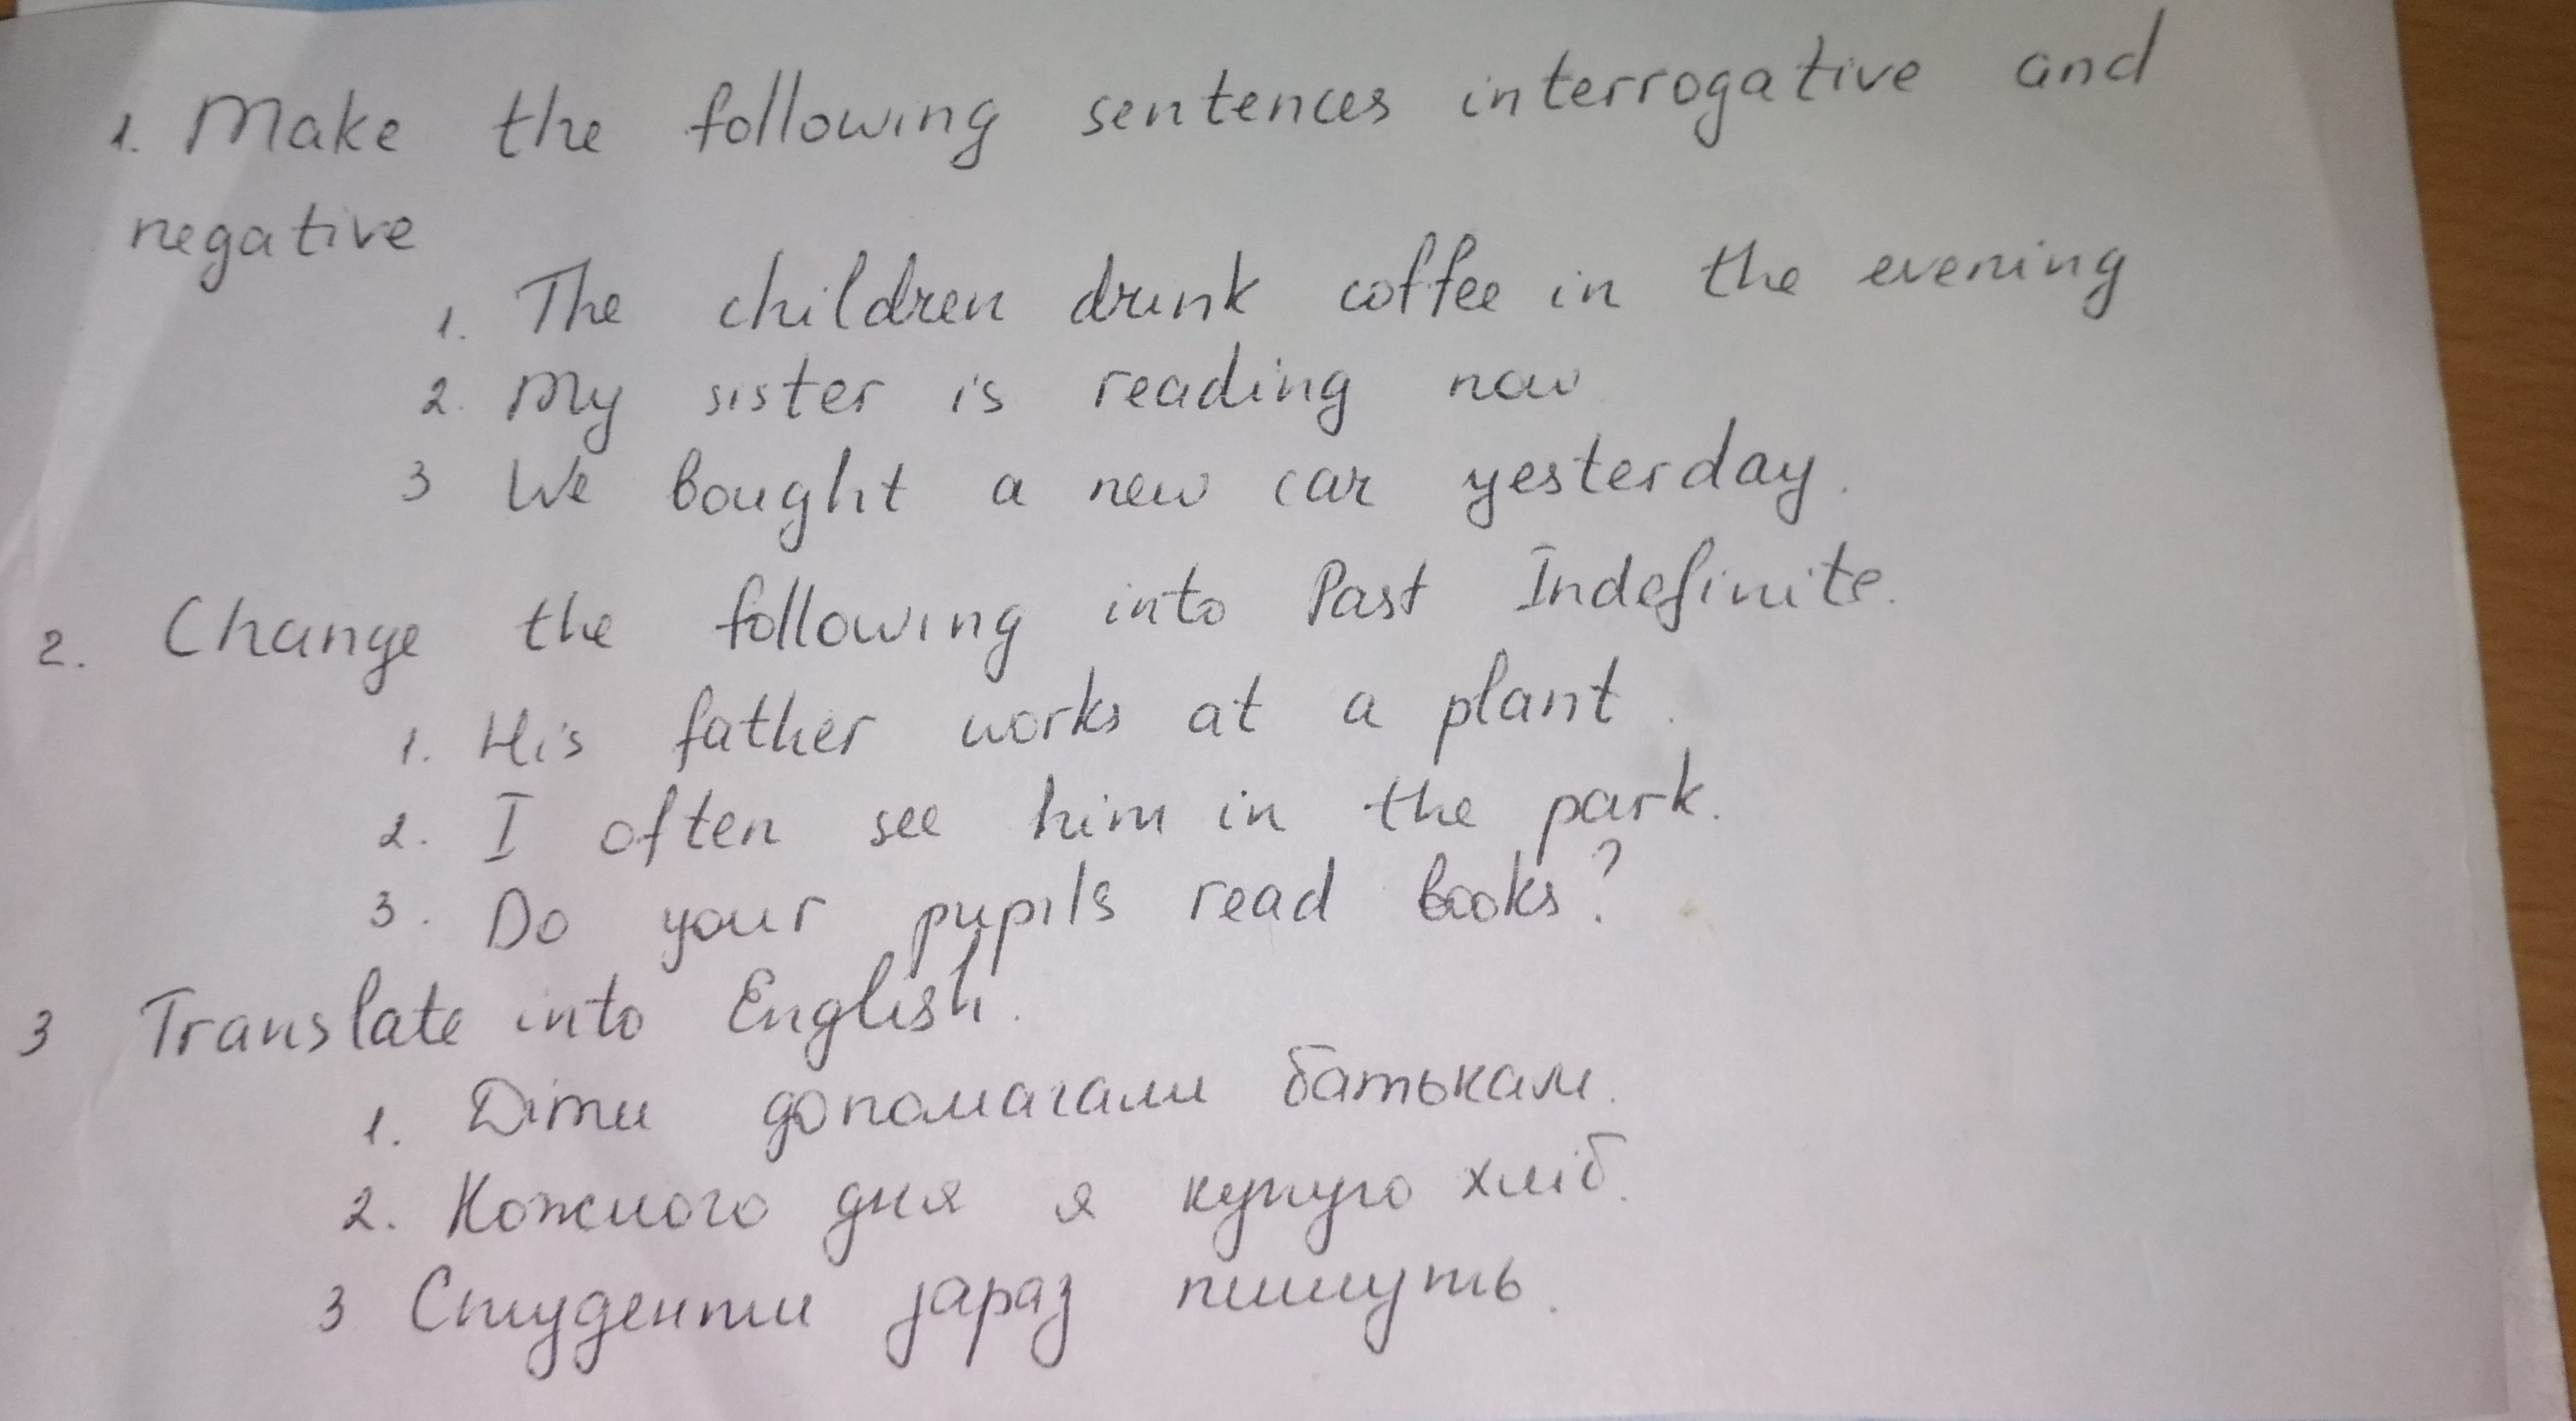 1. Make the following sentences interrogative and
negative
1. The children drink coffee in the evening
2. My sister is reading now
3 We bought a new car yesterday.
2. Change the following into Past Indefinite.
1. His father works at a plant.
2. I often see him in the park.
3. Do your pupils read books?
3 Translate into English.
1. Діти допомагали батькам.
2. Кожного дня я купую хліб.
3 Студенти зараз пишуть.